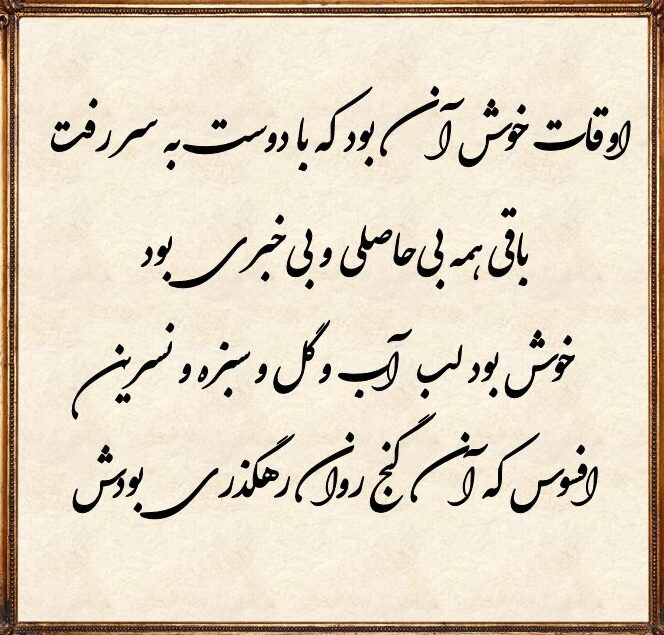 اوقات خوش آن بود که با دوست به سر رفت
باقی همه بی حاصلی و بی خبری بود
خوش بود لب آب و گل و سبزه و نسرین
افسوس که آن گنج روان رهگذری بودش